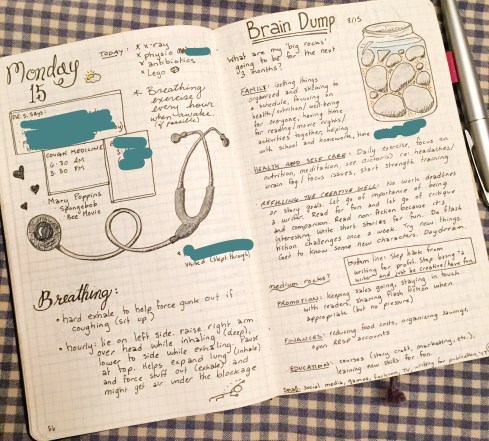 Monday
15
TODAY: x x-ray
x physio
x antibiotics
x Lego
* Breathing
exercise
every hour
when awake
(if possible)
DR. S. SAYS:
COUGH MEDICINE
6:30 AM
3:30 PM
Mary Poppins
- Spongebob
- Bee Movie
visited (slept through)
Breathing:
• hard exhale to help force gunk out if
coughing (sit up)
• hourly: lie on left side. raise right arm
over head while inhaling (deep),
lower to side while exhaling. Pause
at top. Helps expand lung (inhale)
and force stuff out (exhale) and
might get air under the blockage
56
Brain Dump 8/15
What are my 'big rocks'
going to be for the next
3 months?
FAMILY: Getting things
organized and sticking to
a schedule, focusing on
health/nutrition/well-being
for everyone, having time
for reading/movie nights/
activities together, helping
with school and homework, time
HEALTH AND SELF CARE: Daily exercise, focus on
nutrition, meditation, see doctor(s) re: headaches/
brain fog/focus issues, start strength training
REFILLING THE CREATIVE WELL: No work deadlines
or story goals. Let go of importance of being
a writer. Read for fun and let go of critique
and comparison. Read non-fiction because it's
interesting. Write short stories for fun. Do flash
fiction challenges once a week. Try new things.
Get to know some new characters. Daydream.
Bottom line: Step back from
writing for profit. Stop being "a
writer" and just be creative/have fun.
medium rocks?
PROMOTION: Keeping sales going, staying in touch
with readers, sharing flash fiction when
appropriate (but no pressure)
FINANCES: reducing food costs, organizing savings,
open RESP accounts
EDUCATION: courses (story craft, marketing, etc.),
learning new skills for fun.
Sand: social media, games, TV, writing for publication,